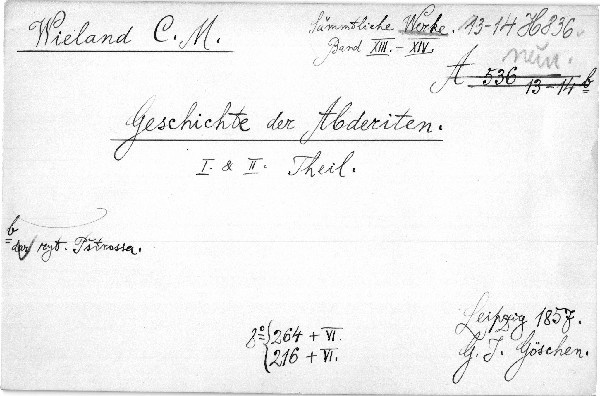 Wieland C. M.
Sämmtliche Werke. 13-14 H 836
Band XIII. - XIV.
neu.
A 536 13-14 b
Geschichte der Abderiten.
I. & II. Theil.
b
Pstrossa.
8° 264 + VI.
216 + VI.
Leipzig 1857.
G. J. Göschen.